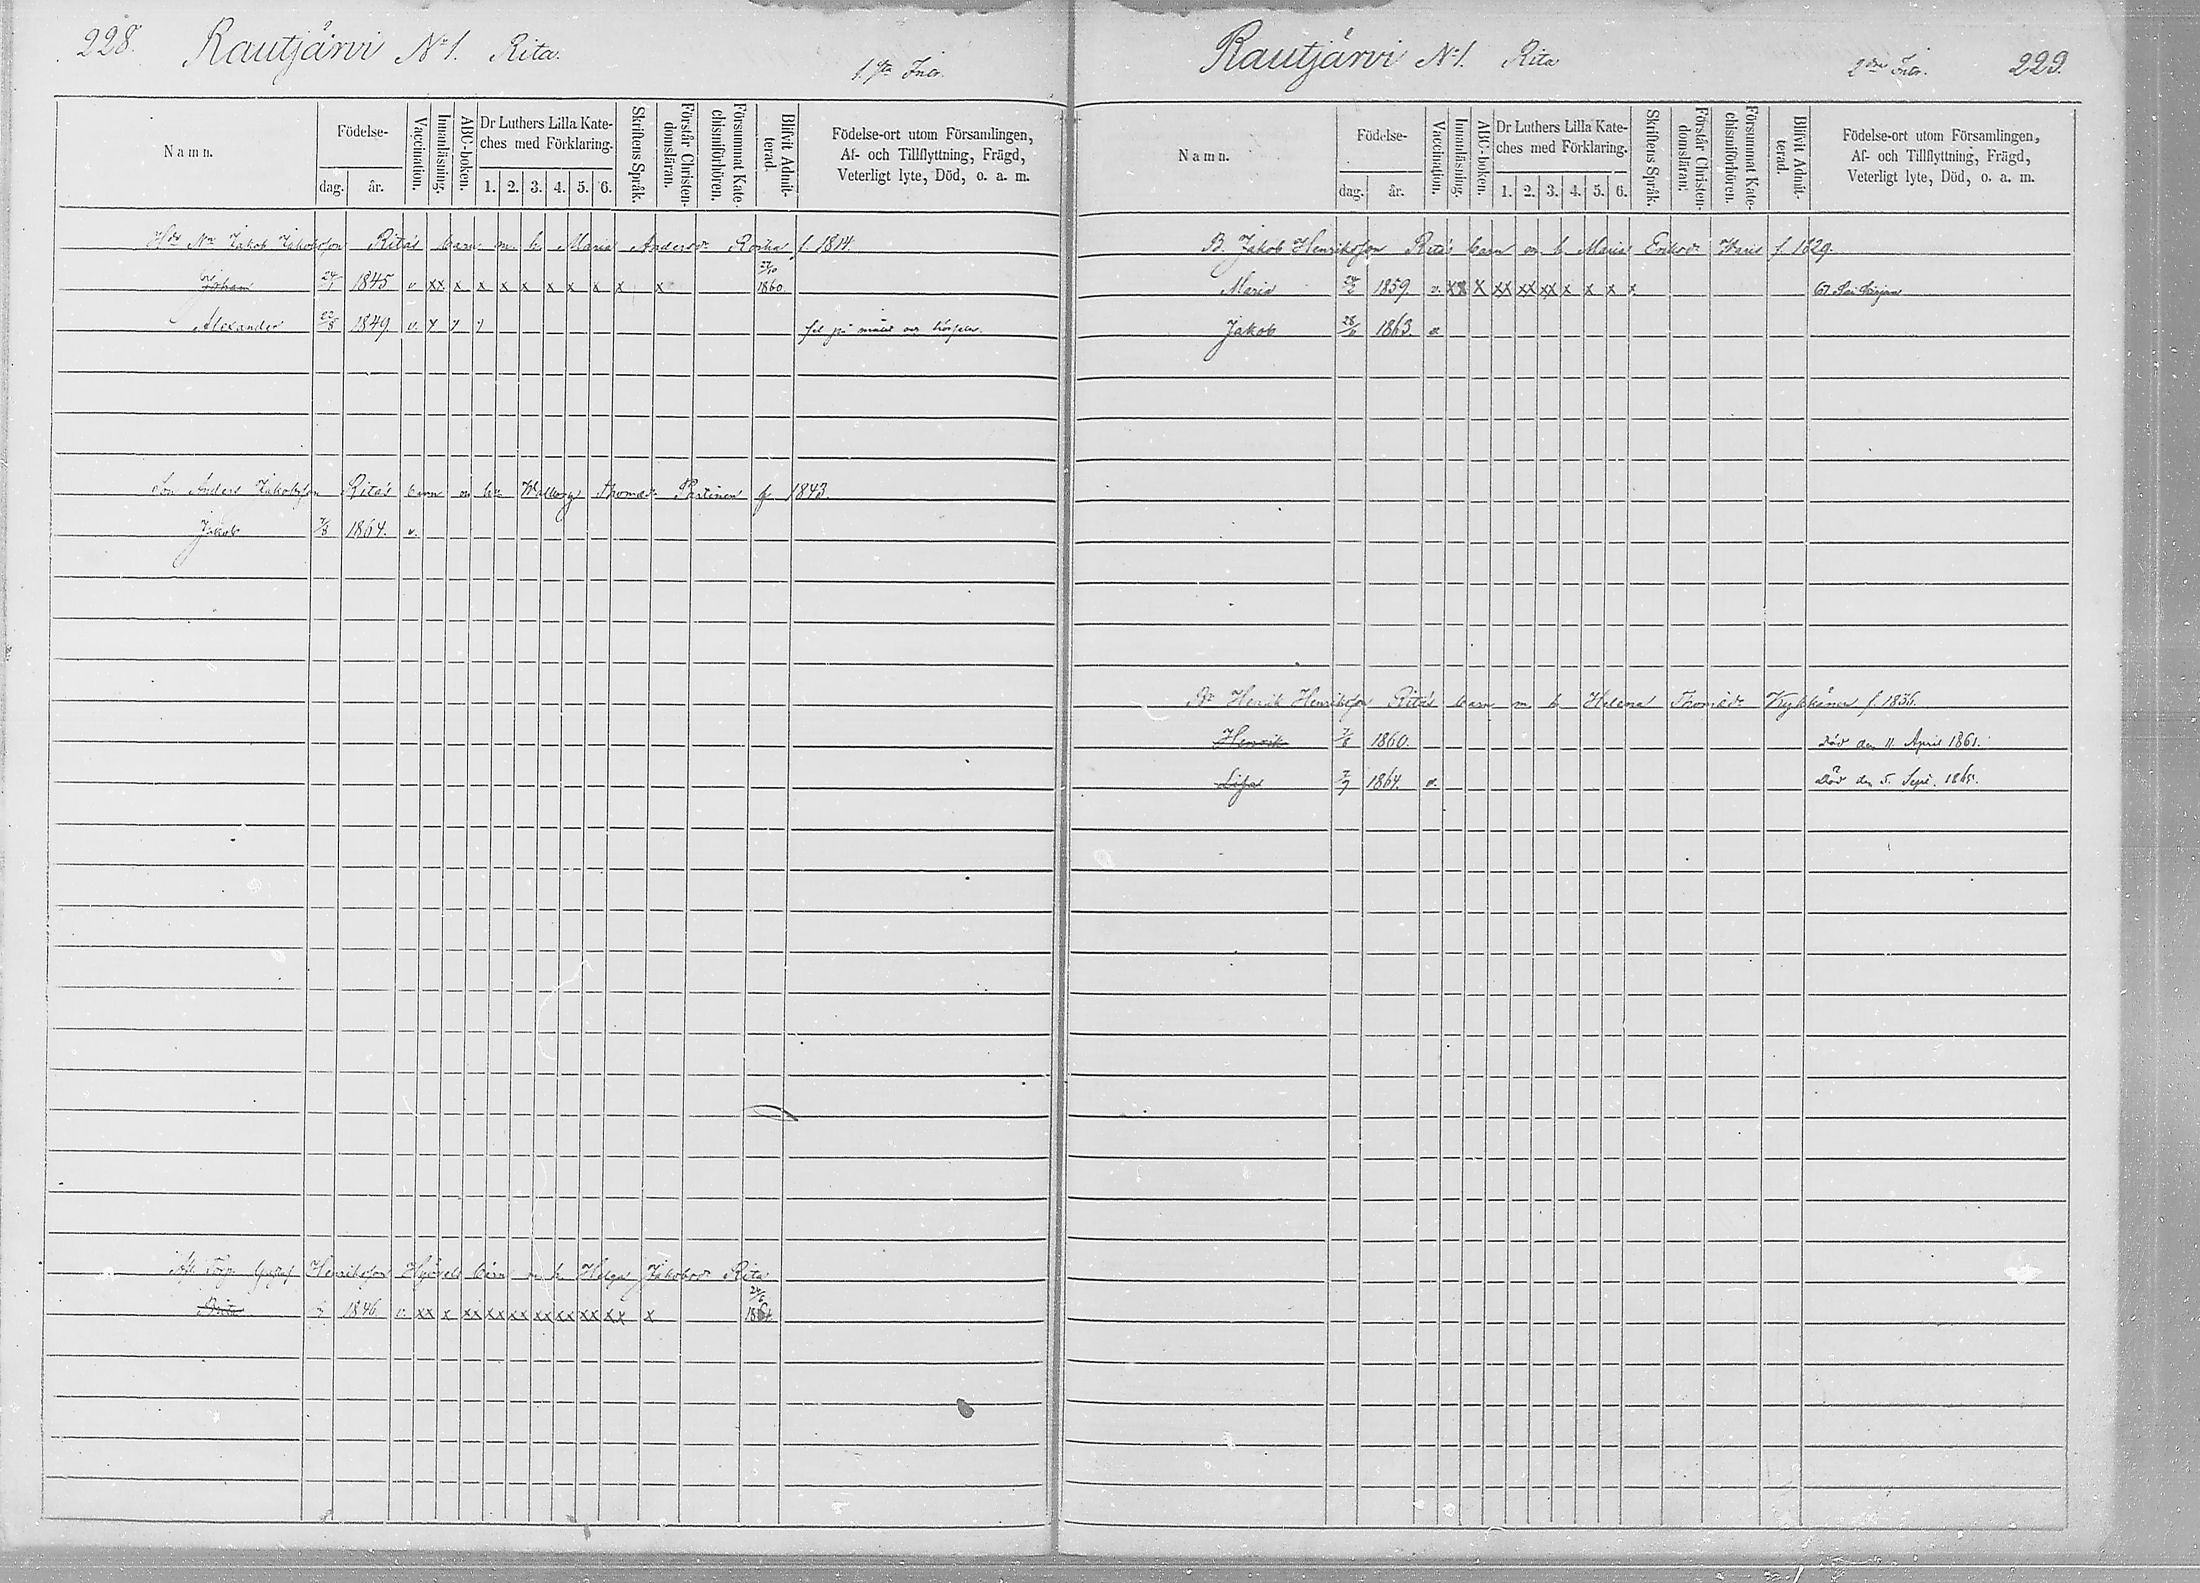 228. Rautjärvi No 1. Rita. 1sta Incr.
Namn.
Födelse-
dag. år.
Vaccination.
Innanläsning.
ABC-boken.
Dr Luthers Lilla Kate-
ches med Förklaring.
1. 2. 3. 4. 5. 6.
Skriftens Språk.
Förstår Christen-
domsläran.
Försummat Kate-
chismiförhören.
Blifvit Admit-
terad.
Födelse-ort utom Församlingen,
Af- och Tillflyttning, Frägd,
Veterligt lyte, Död, o. a. m.
Jakob Jakobsson Rita's barn m. h. Maria Andersdr f. 1814.
Johan 24/7 1845 v. xx x x x x x x x x x 27/10 1860.
Alexander 22/8 1849 v. y y y fel på och
Son Anders Jakobsson Rita's barn m h. Walborg Thomasdr Partinen f. 1843.
Jakob 7/8 1864. v.
Gustaf Henriksson barn m h. Helga Jakobsdr Rita
Brita 1846 v. xx x xx xx xx xx xx xx xx x 24/6 1864
Rautjärvi No 1. Rita 2dra Incr. 229.
Namn.
Födelse-
dag. år.
Vaccination.
Innanläsning.
ABC-boken.
Dr Luthers Lilla Kate-
ches med Förklaring.
1. 2. 3. 4. 5. 6.
Skriftens Språk.
Förstår Christen-
domsläran.
Försummat Kate-
chismiförhören.
Blifvit Admit-
terad.
Födelse-ort utom Församlingen,
Af- och Tillflyttning, Frägd,
Veterligt lyte, Död, o. a. m.
B. Jakob Henriksson Rita's barn m h. Maria Eriksdr f. 1829.
Maria 1859. v. xx x xx xx xx x x x x
Jakob 1863. v.
Br Henrik Henriksson Rita's barn m h Helena Thomasdr f. 1836.
Henrik 7/8 1860. Död den 11. April 1861.
Lisa 1864. v. Död den 5. Sept. 1865.